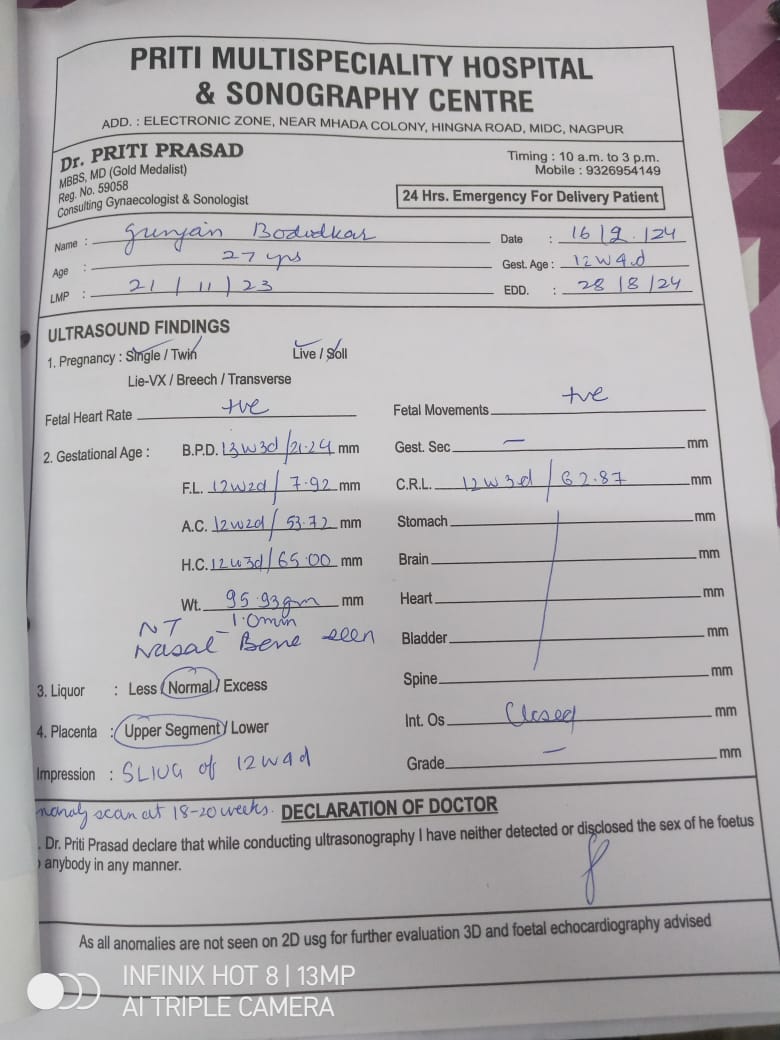 PRITI MULTISPECIALITY HOSPITAL
& SONOGRAPHY CENTRE
ADD. : ELECTRONIC ZONE, NEAR MHADA COLONY, HINGNA ROAD, MIDC, NAGPUR
Dr. PRITI PRASAD
MBBS, MD (Gold Medalist)
Reg. No. 59058
Consulting Gynaecologist & Sonologist
Timing : 10 a.m. to 3 p.m.
Mobile : 9326954149
24 Hrs. Emergency For Delivery Patient
Name : Gunjan
Date : 16/2/24
Age : 27 yrs
Gest. Age : 12w4d
LMP : 21/11/23
EDD. : 28/8/24
ULTRASOUND FINDINGS
1. Pregnancy : Single / Twin Live / Soll
Lie-VX / Breech / Transverse
Fetal Heart Rate +ve
Fetal Movements +ve
2. Gestational Age : B.P.D. 13w3d/21.24 mm
Gest. Sec — mm
F.L. 12w2d/7.92 mm
C.R.L. 12w3d/62.87 mm
A.C. 12w2d/53.72 mm
Stomach mm
H.C. 12w3d/65.00 mm
Brain mm
Wt. 95.93gm mm
Heart mm
NT - 1.0mm
Nasal Bone seen
Bladder mm
3. Liquor : Less / Normal / Excess
Spine mm
4. Placenta : Upper Segment / Lower
Int. Os Closed mm
Impression : SLIUG of 12w4d
Grade — mm
scan at 18-20 weeks.
DECLARATION OF DOCTOR
. Dr. Priti Prasad declare that while conducting ultrasonography I have neither detected or disclosed the sex of he foetus
anybody in any manner.
As all anomalies are not seen on 2D usg for further evaluation 3D and foetal echocardiography advised
INFINIX HOT 8 | 13MP
AI TRIPLE CAMERA